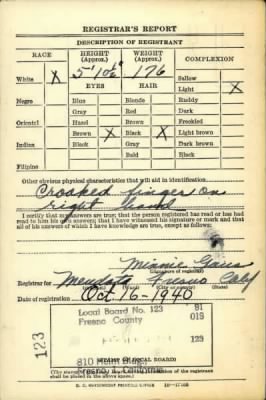 REGISTRAR'S REPORT
DESCRIPTION OF REGISTRANT
RACE HEIGHT (Approx.) WEIGHT (Approx.) COMPLEXION
5' 10½" 176
White X Sallow
EYES HAIR Light X
Negro Blue Blonde Ruddy
Gray Red Dark
Oriental Hazel Brown Freckled
Brown X Black X Light brown
Indian Black Gray Dark brown
Bald Black
Filipino
Other obvious physical characteristics that will aid in identification
Croaked finger on
right hand
I certify that my answers are true; that the person registered has read or has had
read to him his own answers; that I have witnessed his signature or mark and that
all of his answers of which I have knowledge are true, except as follows:
Minnie
(Signature of registrar)
Registrar for Mendota Fresno Calif
Date of registration Oct 16-1940
Local Board No. 123 81
Fresno County 019
123
810 Helm Bldg.
Fresno, California
(STAMP OF LOCAL BOARD)
shall be placed in the above space.)
U. S. GOVERNMENT PRINTING OFFICE